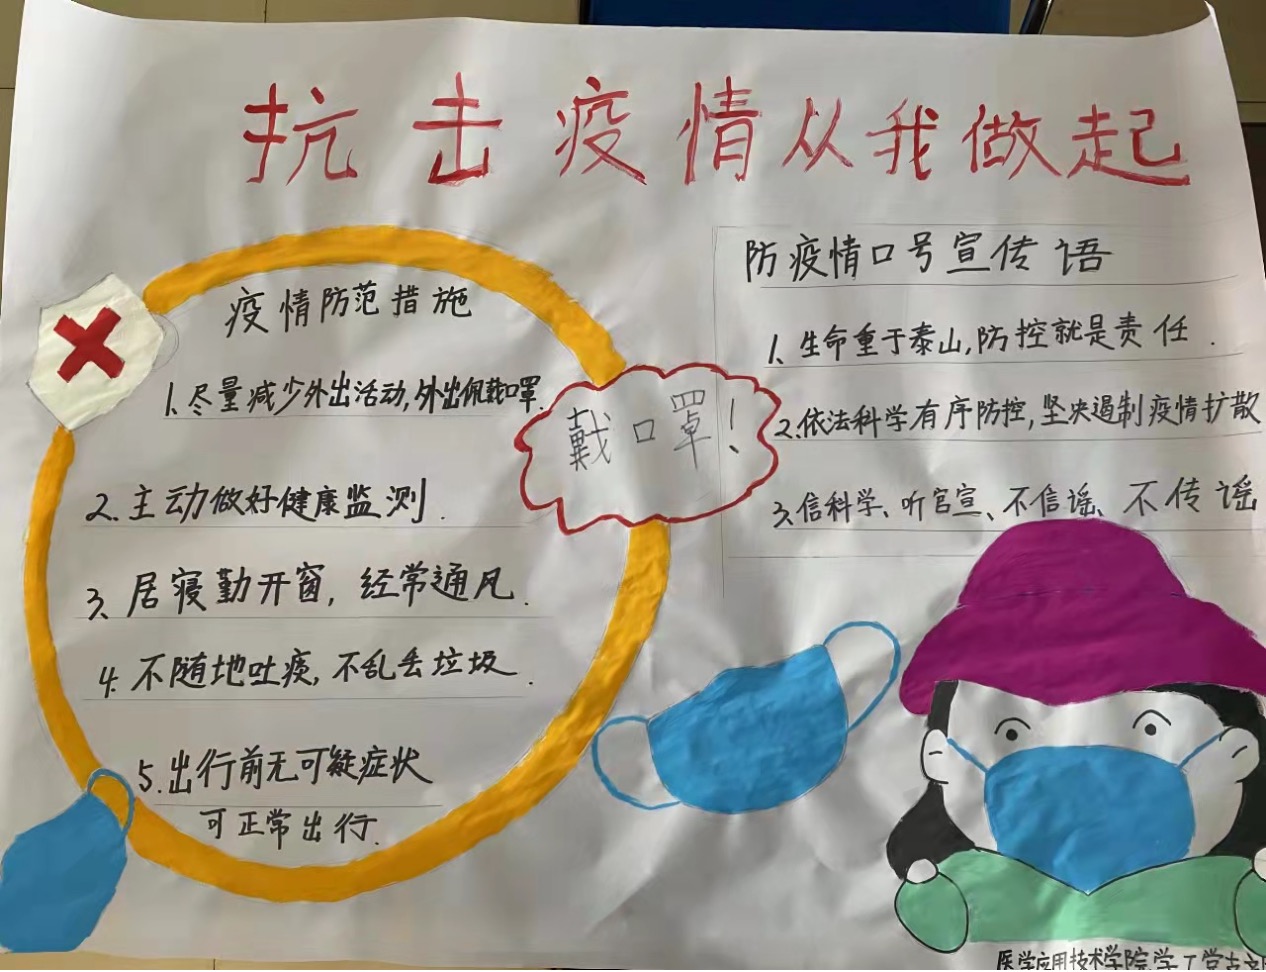 抗击疫情从我做起
疫情防范措施
1、尽量减少外出活动,外出佩戴口罩.
2.主动做好健康监测.
3、居寝勤开窗,经常通风.
4.不随地吐痰,不乱丢垃圾.
5.出行前无可疑症状
可正常出行.
戴口罩!
防疫情口号宣传语
1、生命重于泰山,防控就是责任.
2.依法科学有序防控,坚决遏制疫情扩散
3、信科学、听官宣、不信谣、不传谣
医学应用技术学院学工党支